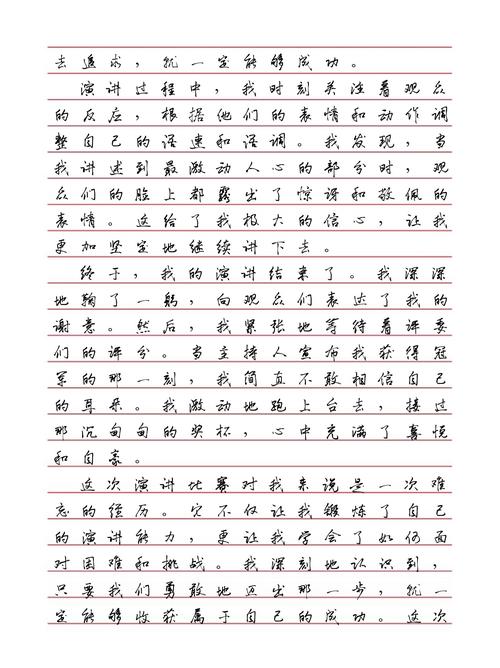 去追求，就一定能够成功。
演讲过程中，我时刻关注着观众
的反应，根据他们的表情和动作调
整自己的语速和语调。我发现，当
我讲述到最激动人心的部分时，观
众们的脸上都露出了惊讶和敬佩的
表情。这给了我极大的信心，让我
更加坚定地继续讲下去。
终于，我的演讲结束了。我深深
地鞠了一躬，向观众们表达了我的
谢意。然后，我紧张地等待着评委
们的评分。当主持人宣布我获得冠
军的那一刻，我简直不敢相信自己
的耳朵。我激动地跑上台去，接过
那沉甸甸的奖杯，心中充满了喜悦
和自豪。
这次演讲比赛对我来说是一次难
忘的经历。它不仅让我锻炼了自己
的演讲能力，更让我学会了如何面
对困难和挑战。我深刻地认识到，
只要我们勇敢地迈出那一步，就一
定能够收获属于自己的成功。这次